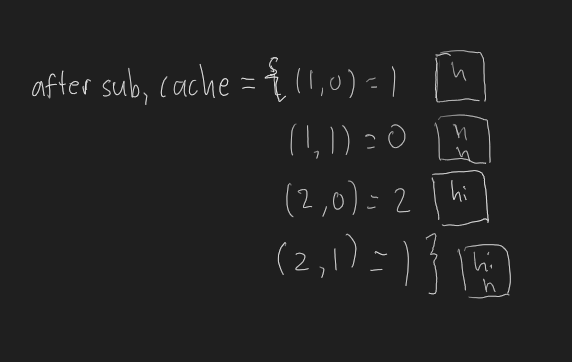 after sub, cache = { (1,0) = 1 h
(1,1) = 0 h
h
(2,0) = 2 hi
(2,1) = 1 } hi
h